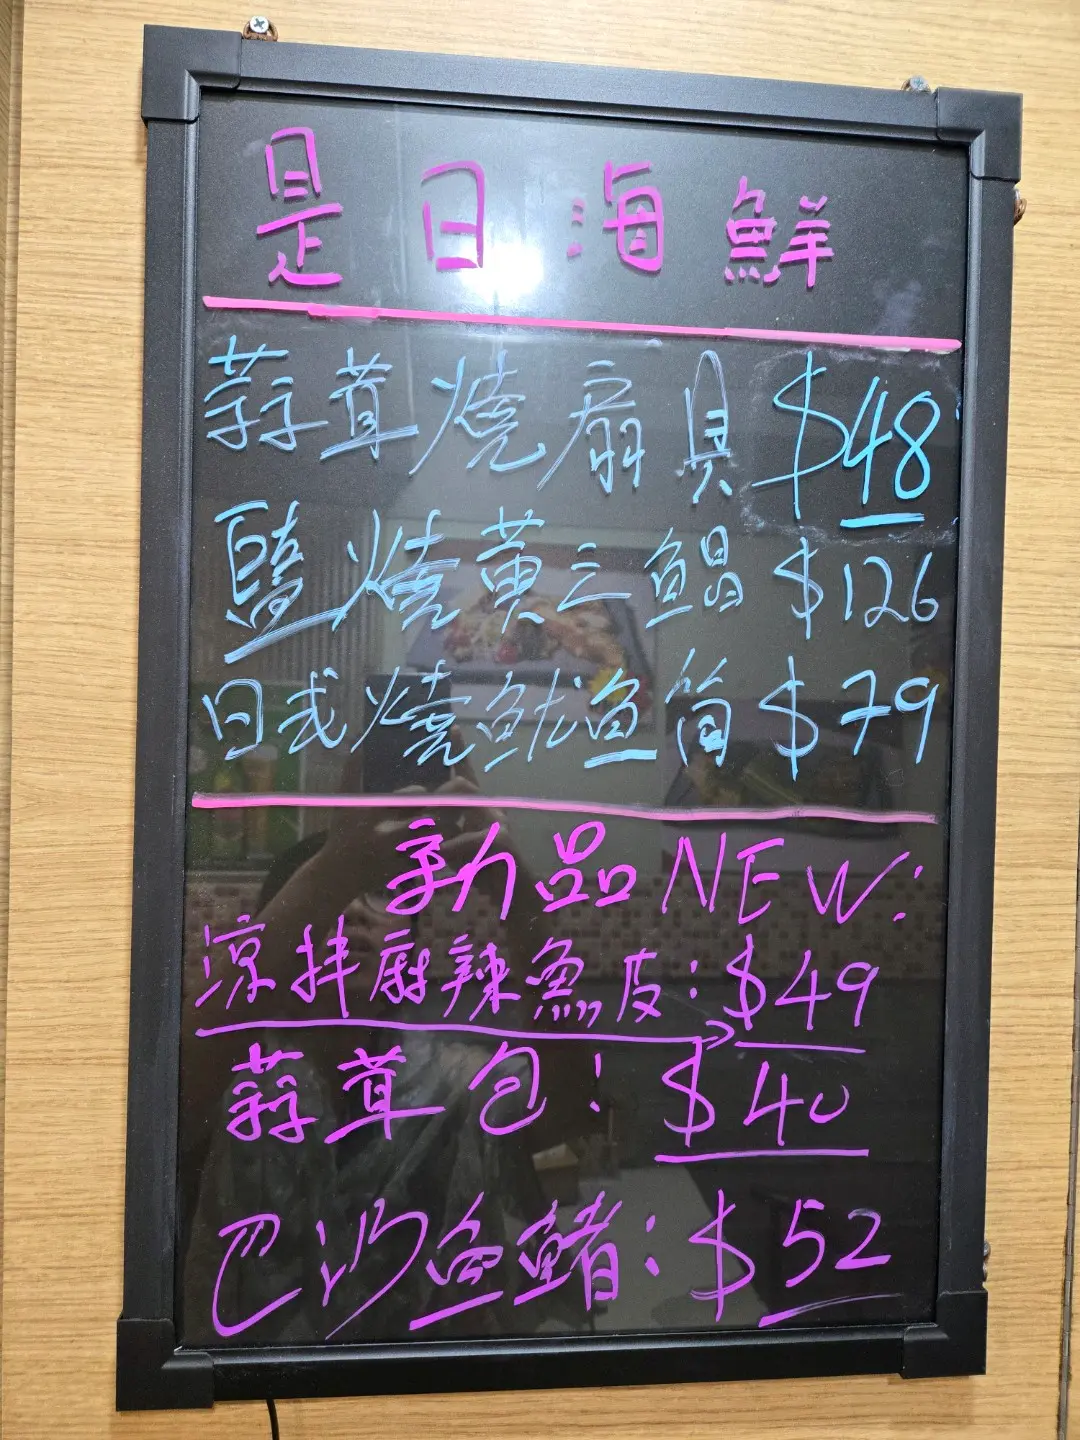 是日海鮮
蒜茸燒扇貝 $48
鹽燒黃立鯧 $126
日式燒魷魚筒 $79
新品NEW:
涼拌麻辣魚皮:$49
蒜茸包: $40
巴沙魚鰭:$52